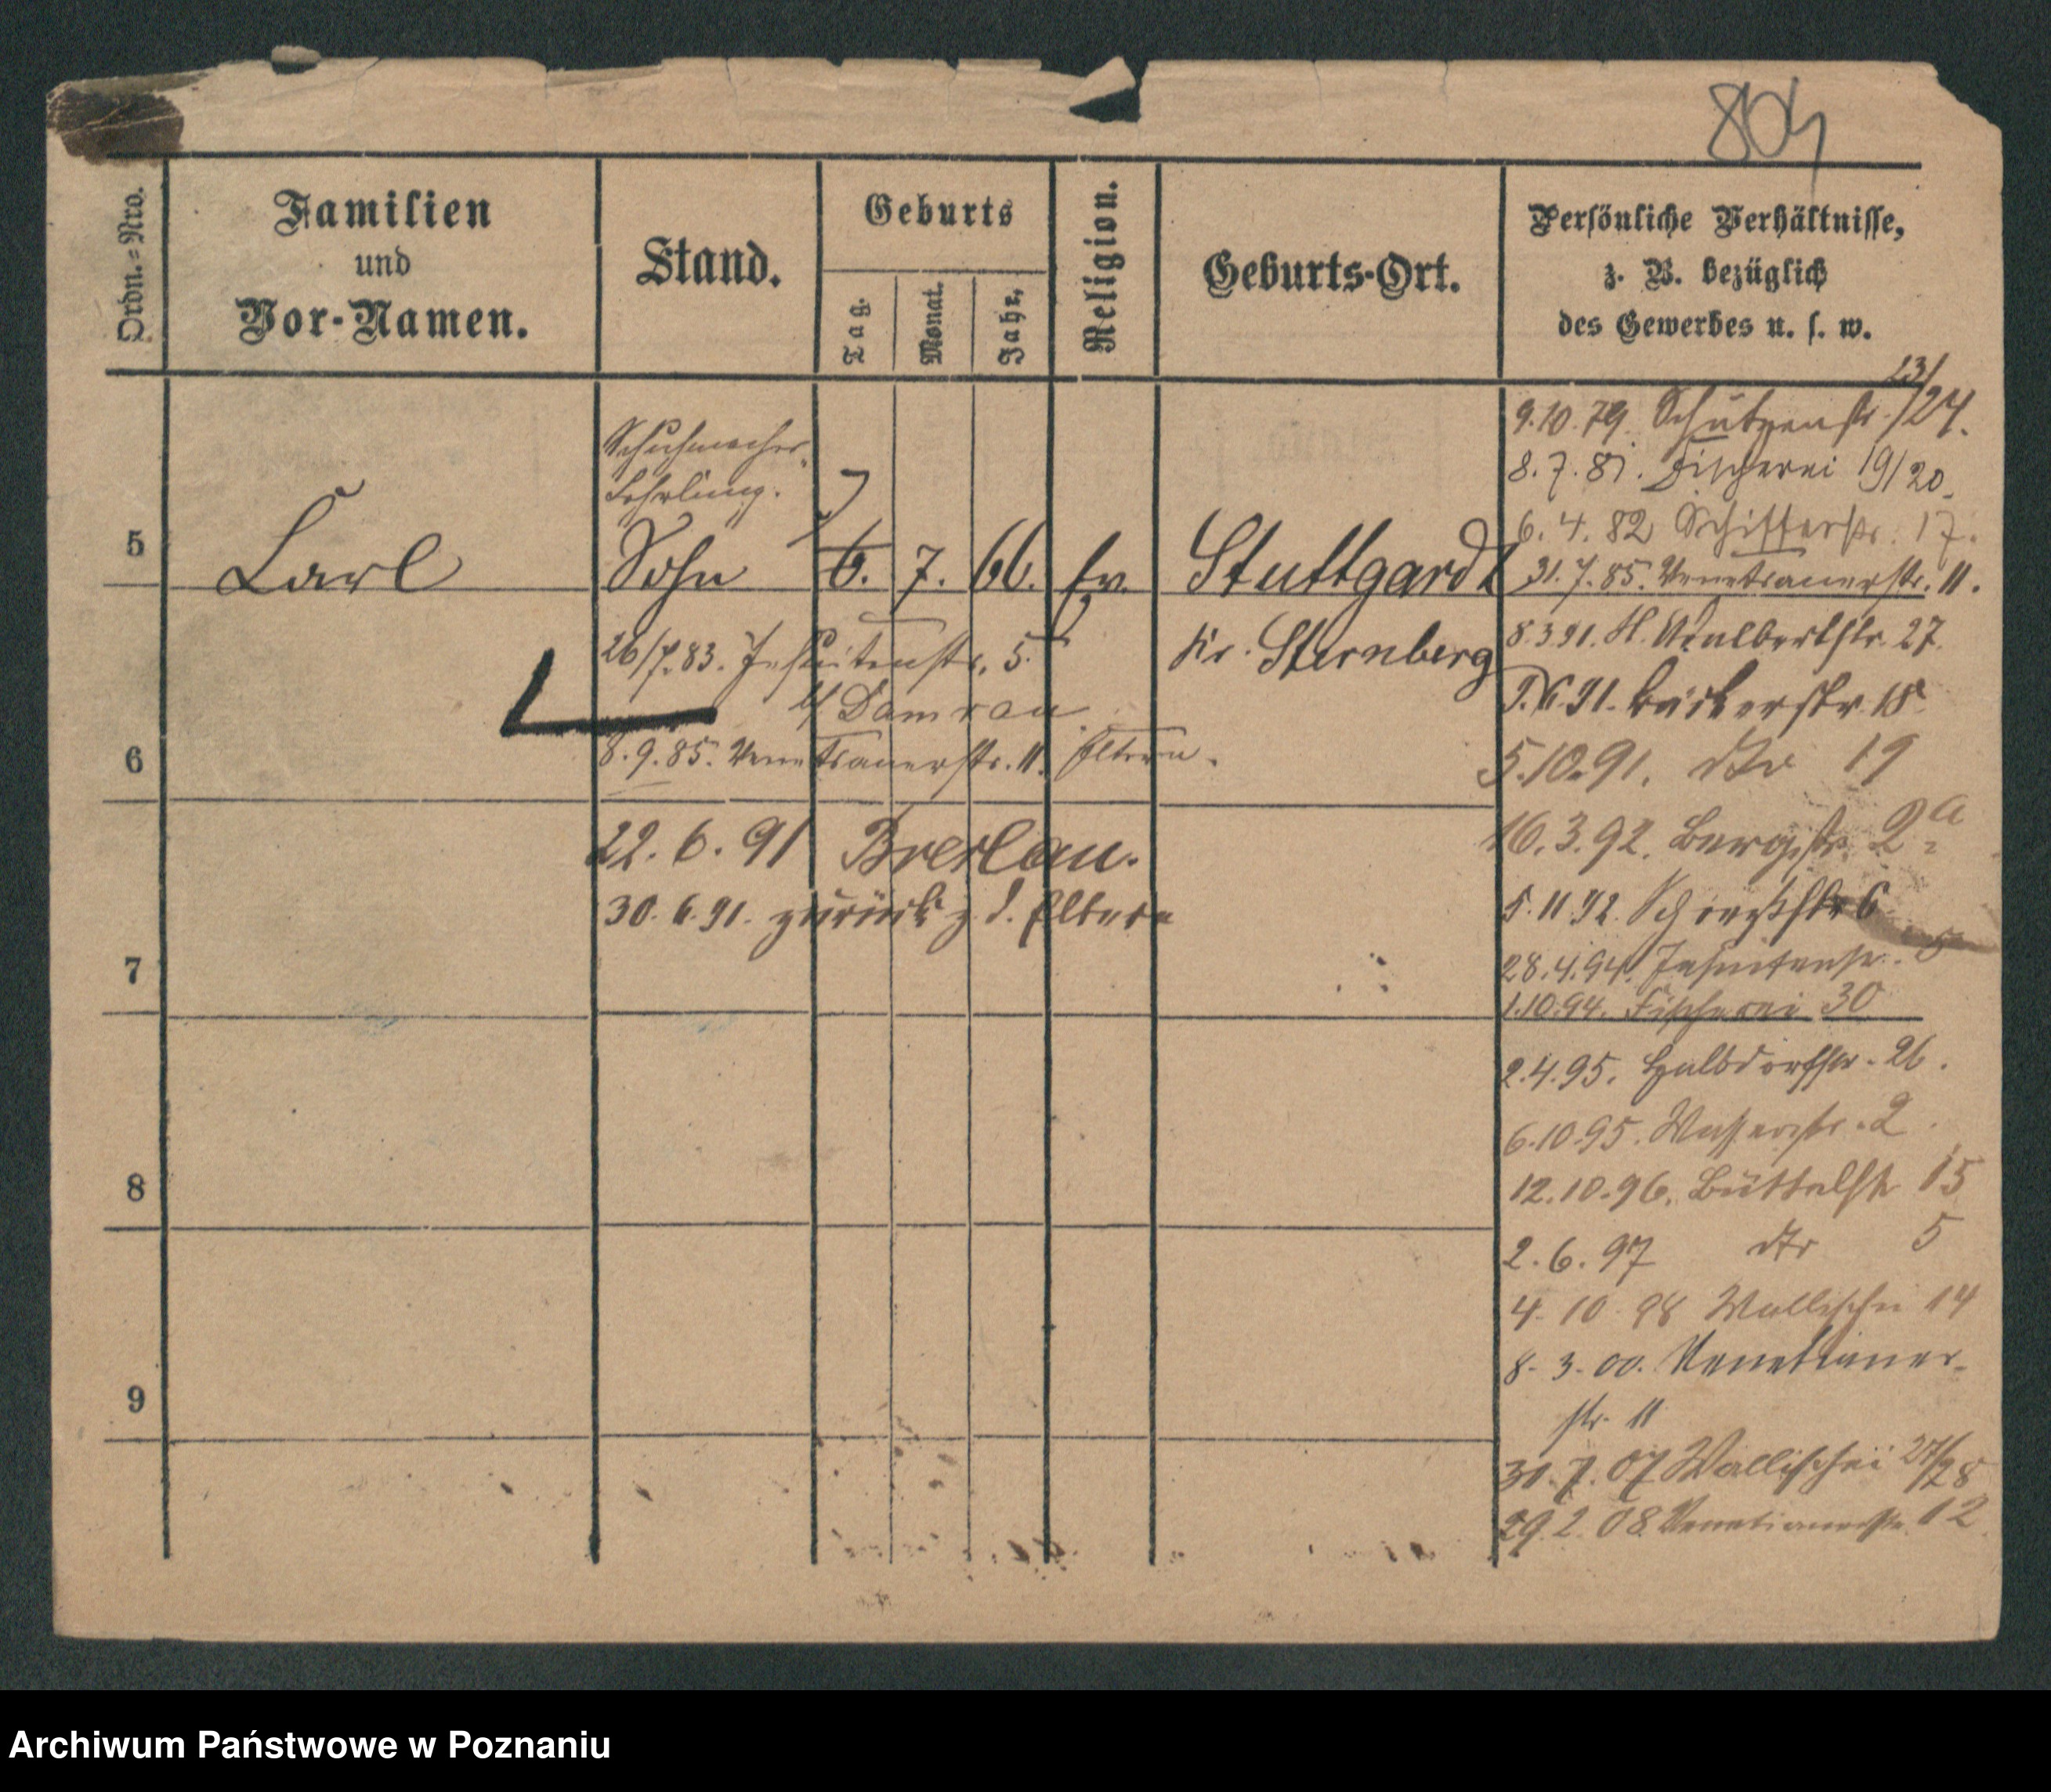 804
Ordn.=Nro.
Familien
und
Vor-Namen.
Stand.
Geburts
Tag.
Monat.
Jahr.
Religion.
Geburts-Ort.
Persönliche Verhältnisse,
z. B. bezüglich
des Gewerbes u. s. w.
5
Carl
Schuhmacher
Lehrling.
Sohn
7
6.
7.
66.
ev.
Stuttgardt
Kr. Sternberg
26/7.83. Jesuitenstr. 5.
b/ Damrau
6
8.9.85. Venetianerstr. 11. Eltern.
22. 6. 91 Breslau.
30. 6. 91. zurück z. d. Eltern
7
8
9
9.10.79. Schützenstr. 23/24.
8.7.81. Fischerei 19/20.
6. 4. 82 Schifferstr. 17.
31.7.85. Venetianerstr. 11.
8.3.91. St. Adalbertstr. 27.
91. Bäckerstr. 18
5.10.91. dto 19
16.3.92. Bergstr. 2a
5.11.92. Schiesstr 6
28.4.94. Jesuitenstr. 5
1.10.94. Fischerei 30
2.4.95. Halbdorfstr. 26.
6.10.95. Wasserstr. 2.
12.10.96. Büttelstr 15
2.6.97 dto 5
4. 10. 98 Wallischei 14
8. 3. 00. Venetianer-
str. 11
31.7.07 Wallischei 27/28
29.2.08. Venetianerstr. 12
Archiwum Państwowe w Poznaniu